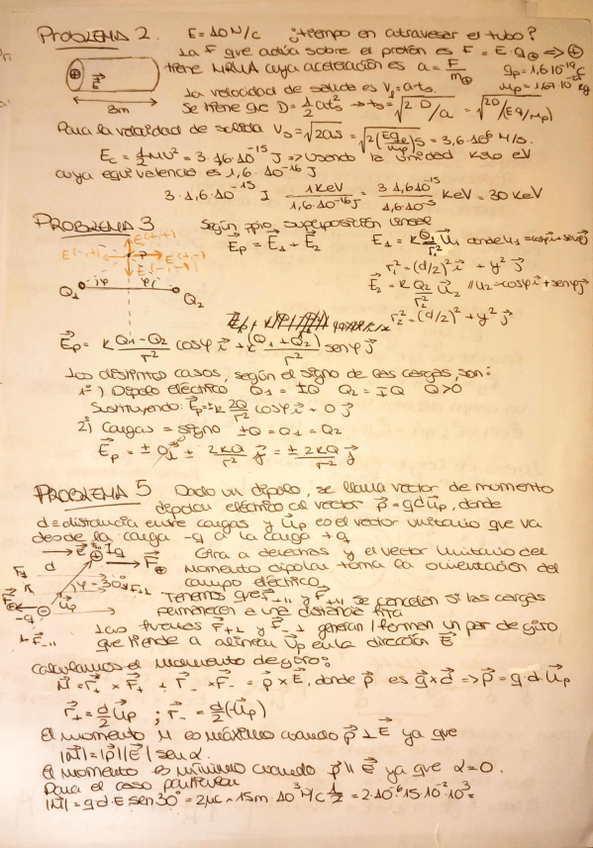 PROBLEMA 2. E=10N/C ¿tiempo en atravesar el tubo?
La F que actúa sobre el protón es F = E·q⊕ → ⊕
tiene MRUA cuya aceleración es a = F/m⊕ qp=1,6·10⁻¹⁹C
E⃗ mp=1,67·10⁻²⁷ kg
3m
La velocidad de salida es Vs=a·ts.
Se tiene que D=½ats² → ts=√(2·D/a) = √(2D/(Eq/mp))
Para la velocidad de salida Vs=√2as = √(2(Eqp/mp)s = 3,6·10⁶ M/s.
Ec=½MV² = 3·16·10⁻¹⁵ J => usando la unidad keV
cuya equivalencia es 1,6·10⁻¹⁶ J
3·1,6·10⁻¹⁵ J 1KeV/1,6·10⁻¹⁶J = 3·1,6·10⁻¹⁵/1,6·10⁻¹⁶ KeV = 30 KeV
PROBLEMA 3 Según ppio superposición lineal
E⃗p = E⃗1 + E⃗2 E1 = K Q1/r1² u⃗1 donde u1=cosφi+senφj
r1²=(d/2)² i⃗ + y² j⃗
E⃗2 = K Q2/r2² u⃗2 // u2=-cosφi+senφj
r2²=(d/2)²+y² j⃗
E(+,+)
E(-,+) P E(+,-)
E(-,-)
Q1 φ φ Q2
E⃗p = K Q1-Q2/r² cosφ i⃗ + K(Q1+Q2)/r² senφ j⃗
Los distintos casos, según el signo de las cargas, son:
1º) Dipolo eléctrico Q1 = ±Q Q2 = ∓Q Q>0
Sustituyendo: E⃗p=±K 2Q/r² cosφ i⃗ + 0 j⃗
2º) Cargas = signo ±Q=Q1=Q2
E⃗p = ± 0 i⃗ ± 2KQ/r² j⃗ = ± 2KQ/r² j⃗
PROBLEMA 5 Dado un dipolo, se llama vector de momento
dipolar eléctrico al vector p⃗=qdu⃗p, donde
d=distancia entre cargas y u⃗p es el vector unitario que va
desde la carga -q a la carga +q
E⃗ +q Gira a derechas y el vector unitario del
d F⃗ momento dipolar toma la orientación del
φ=30º campo eléctrico.
-q u⃗p Tenemos que F⃗-11 y F⃗+11 se cancelan si las cargas
permanecen a una distancia fija
Las fuerzas F⃗+⊥ y F⃗-⊥ generan/forman un par de giro
que tiende a alinear u⃗p en la dirección E⃗
Calculamos el momento de giro:
M⃗=r⃗+ × F⃗+ + r⃗- × F⃗- = p⃗×E⃗, donde p⃗ es q⃗×d⃗ => p⃗=q·d·u⃗p
r⃗+=d/2 u⃗p ; r⃗-=d/2(-u⃗p)
El momento M es máximo cuando p⃗⊥E⃗ ya que
|M⃗|=|p⃗||E⃗| sen α.
El momento es mínimo cuando p⃗∥E⃗ ya que α=0.
Para el caso particular
|M⃗|=q·d·E sen30º=2μC·15m·10³N/C ½ = 2·10⁻⁶·15·10⁻²·10³=